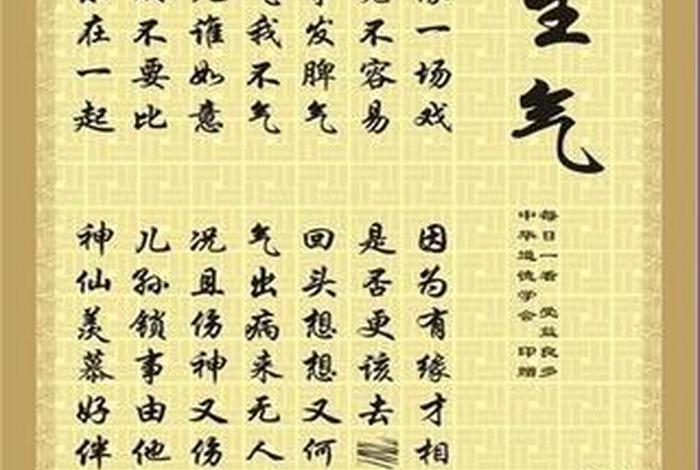 气
每日一看 受益良多
中华道德学会 印赠
一场戏 因为有缘才相
不容易 是否更该去
发脾气 回头想想又何
我不气 气出病来无人
谁如意 况且伤神又伤
不要比 儿孙锁事由他
在一起 神仙羡慕好伴